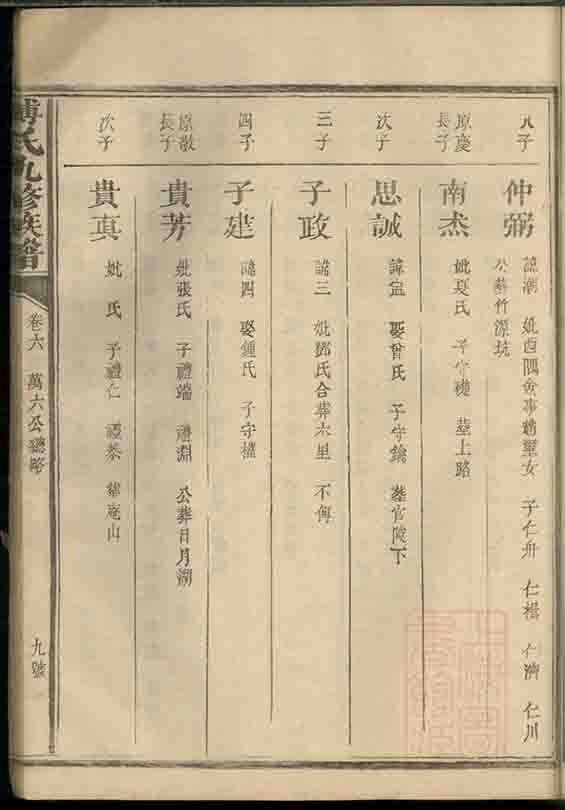 子
仲弼
諱潮 妣西隅僉事趙壐女 子仁舟 仁楫 仁濟 仁川
公葬竹源坑
原慶長子
南杰
妣夏氏 子守礎 塟上路
次子
思誠
諱 娶曾氏 子守鑰 葬官陂下
三子
子政
諱三 妣鄧氏合葬六里 不傳
四子
子建
諱四 娶鍾氏 子守權
原敬長子
貴芳
妣張氏 子禮端 禮淵 公葬日月湖
次子
貴真
妣 氏 子禮仁 禮泰 葬庵山
傅氏九修族譜
卷六 萬六公總略
九號